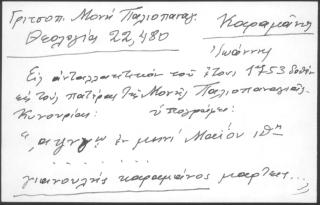 Γριτσοπ. Μονή Παλιοπαναγ.
Θεολογία 22,480
Καραμάνος
Ἰωάννης
Εἰς ἀνταλλακτικόν τοῦ ἔτους 1753 δοθέν
εἰς τούς πατέρας τῆς Μονῆς Παλιοπαναγιᾶς
Κυνουρίας: ὑπογράφει:
"͵αψνγω ἐν μηνί Μαΐου ιθη
. . . . . . . .
γιανουλης καραμάνος μαρτυς...